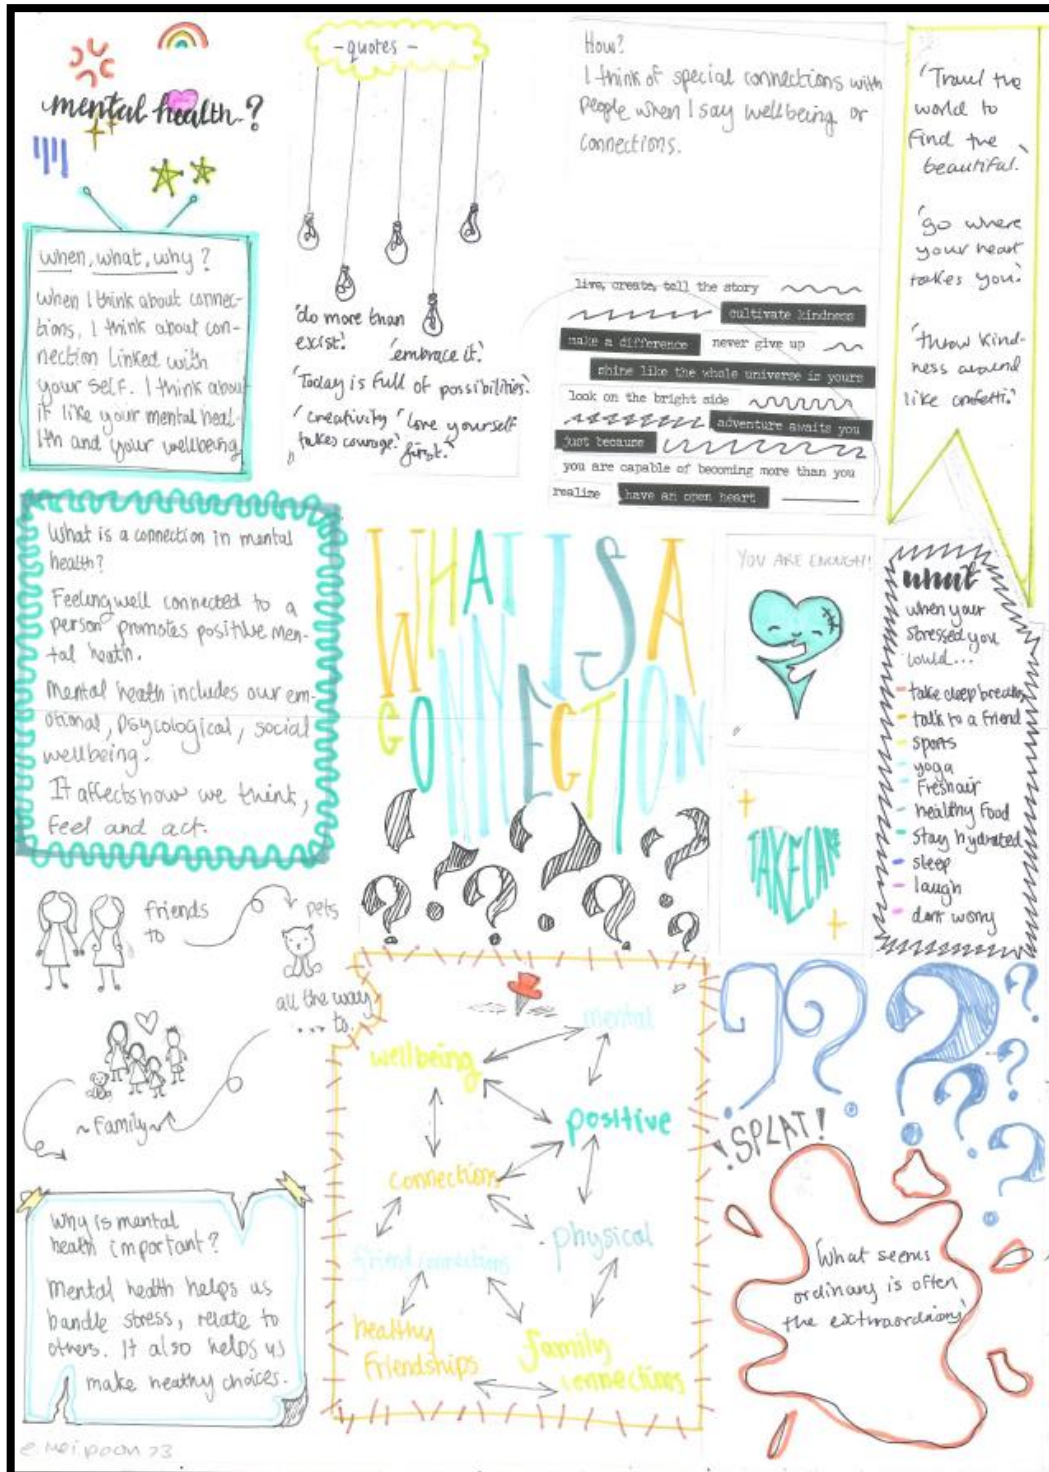 mental health?
when, what, why?
when I think about connec-
tions, I think about con-
nection linked with
your self. I think about
it like your mental heal-
lth and your wellbeing
- quotes -
'do more than
exist.'
'embrace it.'
'Today is full of possibilities.'
'creativity
takes courage.'
'love yourself
first.'
How?
I think of special connections with
people when I say wellbeing or
connections.
live, create, tell the story
cultivate kindness
make a difference never give up
shine like the whole universe is yours
look on the bright side
adventure awaits you
just because
you are capable of becoming more than you
realize have an open heart
'Travel the
world to
find the
beautiful.'
'go where
your heart
takes you.'
'throw kind-
ness around
like confetti.'
What is a connection in mental
health?
Feeling well connected to a
person promotes positive men-
tal heath.
Mental heath includes our em-
otional, psycological, social
wellbeing.
It affects how we think,
feel and act.
WHAT IS A
CONNECTION
YOU ARE ENOUGH!
TAKE CARE
what
when your
stressed you
could...
- take deep breaths
- talk to a friend
- sports
- yoga
- Fresh air
- healthy food
- stay hydrated
- sleep
- laugh
- dont worry
friends
to
pets
all the way
.... to..
~ family ~
Why is mental
heath important?
Mental heath helps us
handle stress, relate to
others. It also helps us
make heathy choices.
mental
wellbeing
positive
connections
physical
friend connections
healthy
friendships
family
connections
!SPLAT!
'What seems
ordinary is often
the extraordinary'